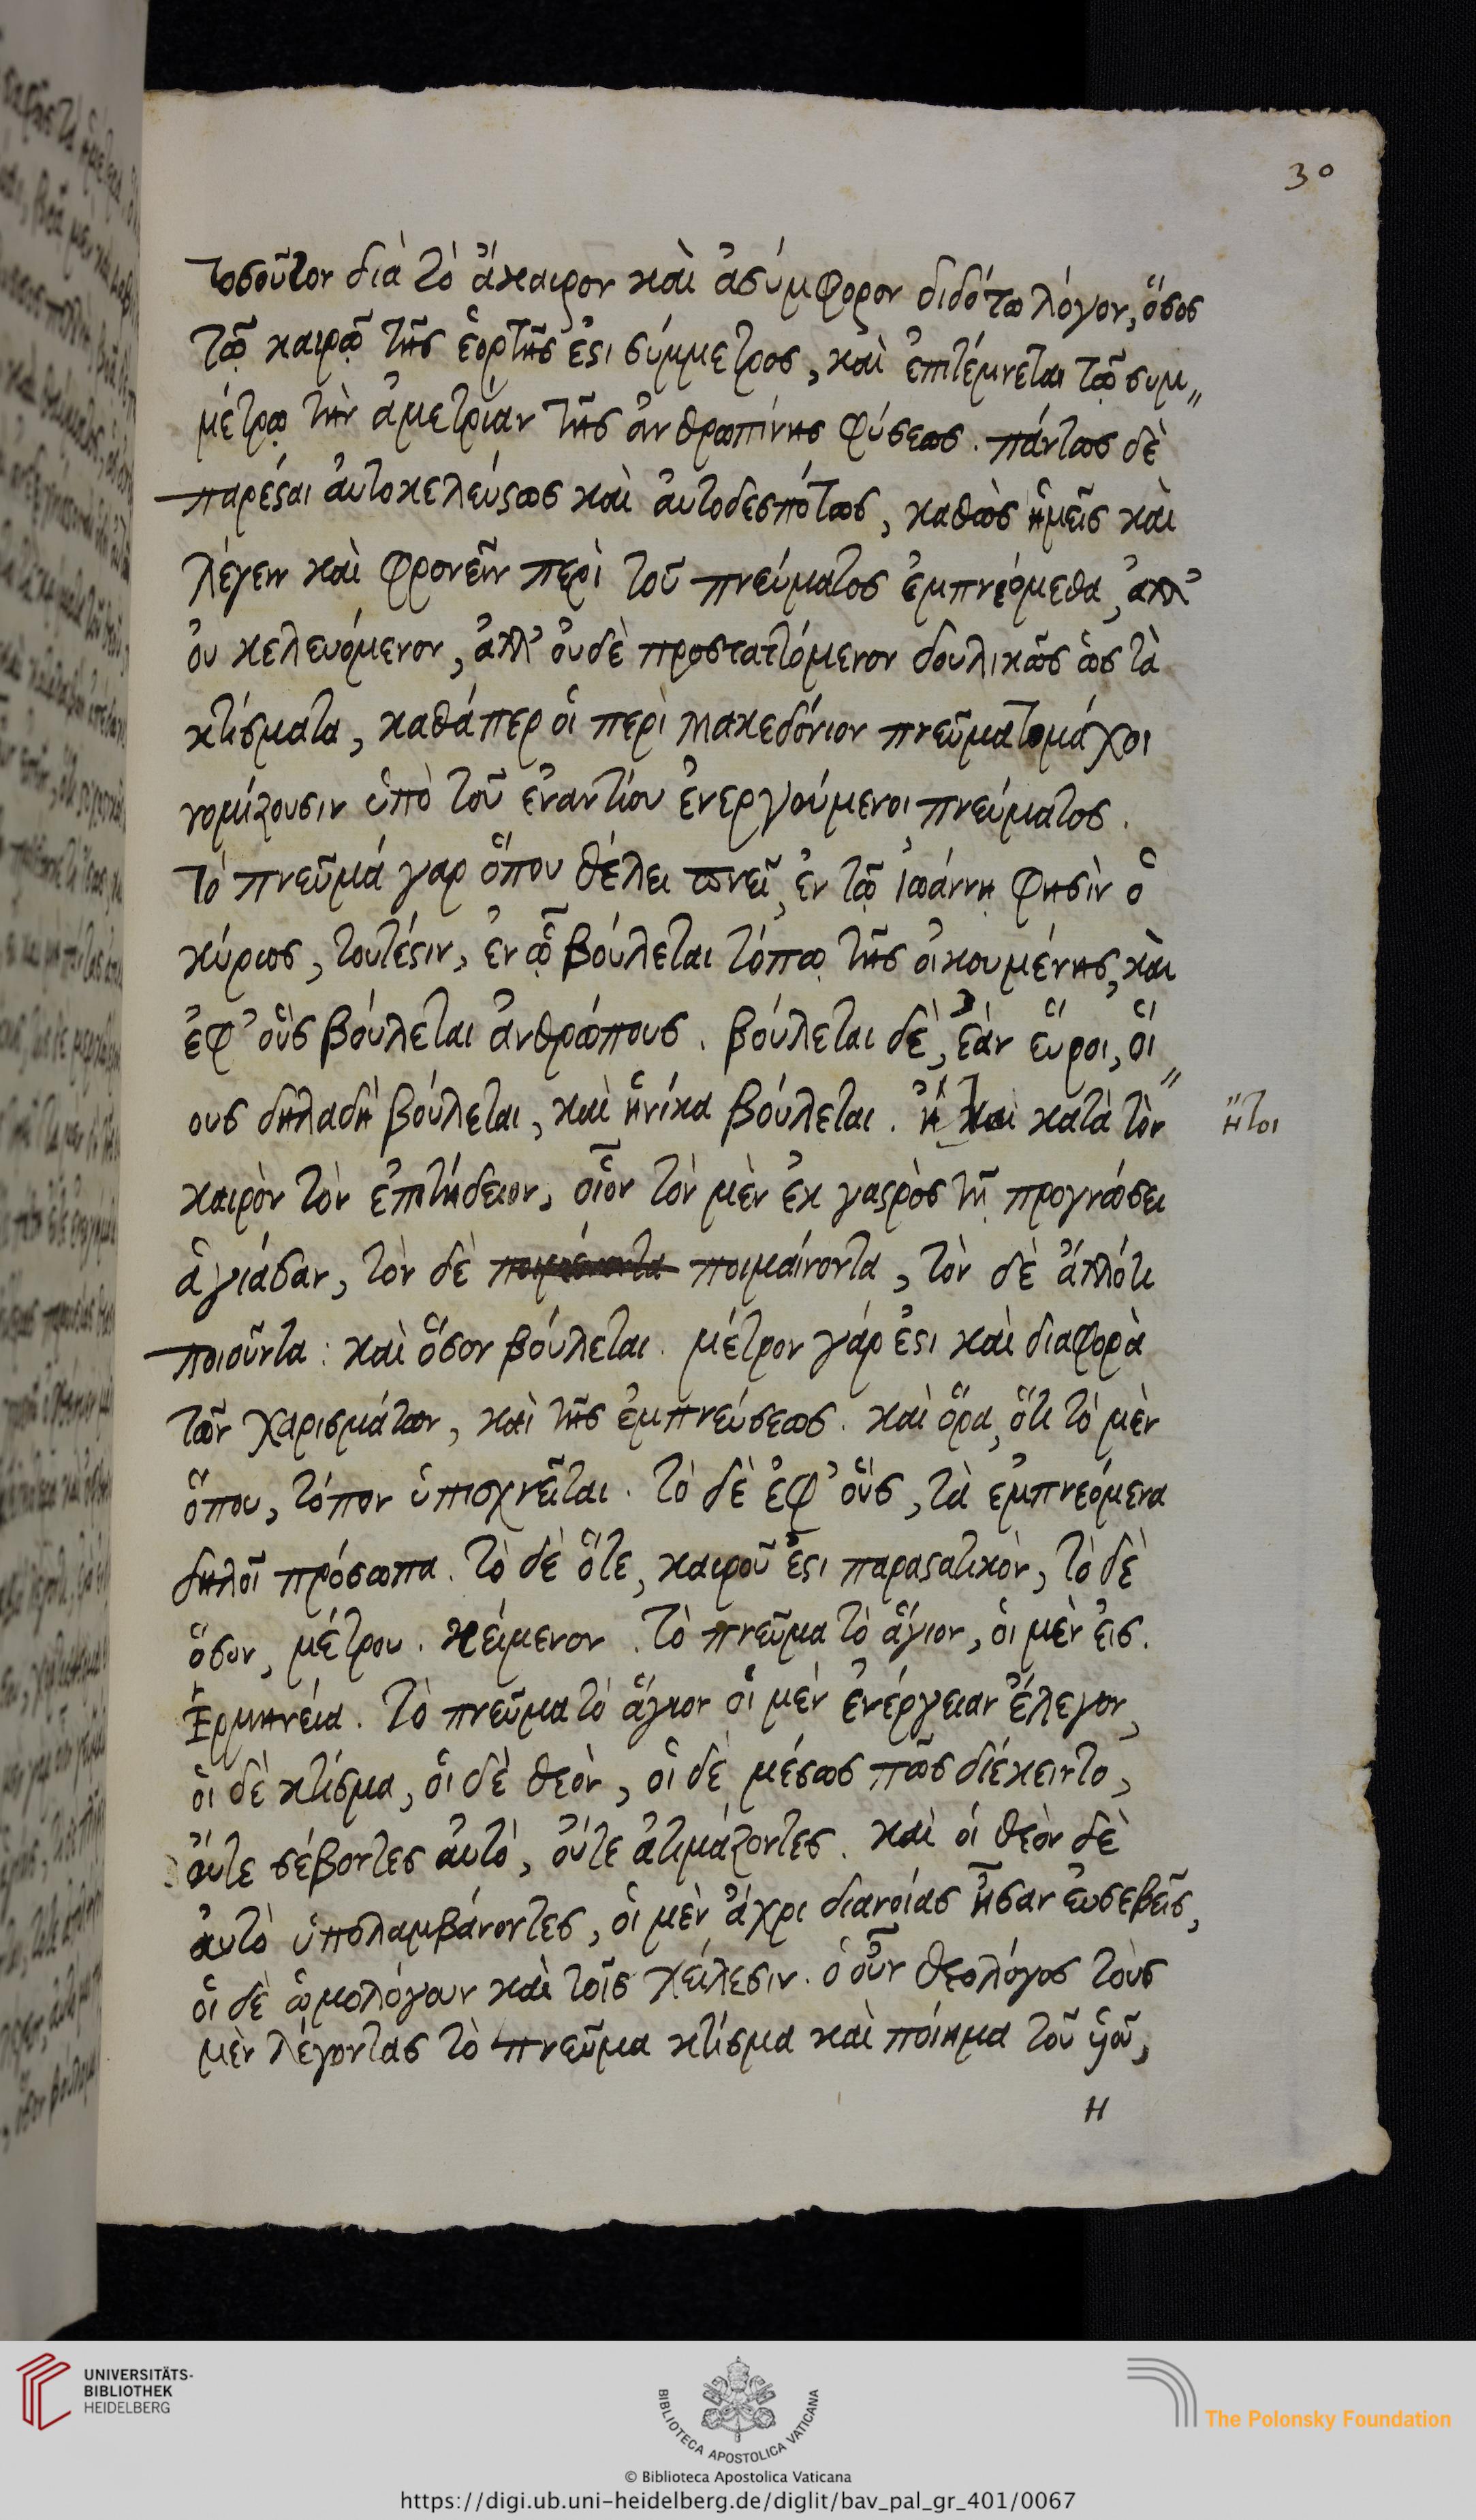 30
τοσοῦτον διὰ τὸ ἄκαιρον καὶ ἀσύμφορον διδότω λόγον, ὅσος
τῷ καιρῷ τῆς ἑορτῆς ἐϛι σύμμετρος, καὶ ἐπιτέμνεται τῷ συμ„
μέτρῳ τὴν ἀμετρίαν τῆς ἀνθρωπίνης φύσεως. πάντως δὲ
παρέϛαι αὐτοκελεύϛως καὶ αὐτοδεσπότως, καθὼς ἡμεῖς καὶ
λέγειν καὶ φρονεῖν περὶ τοῦ πνεύματος ἐμπνεόμεθα, ἀλλ'
οὐ κελευόμενον, ἀλλ' οὐδὲ προστατόμενον δουλικῶς ὡς τὰ
κτίσματα, καθάπερ οἱ περὶ Μακεδόνιον πνεῦματομάχοι
νομίζουσιν ὑπὸ τοῦ ἐναντίου ἐνεργούμενοι πνεύματος.
Τὸ πνεῦμά γαρ ὅπου θέλει πνεῖ, ἐν τῷ Ἰωάννῃ φησὶν ὁ
κύριος, τουτέϛιν, ἐν ᾧ βούλεται τόπῳ τῆς οἰκουμένης, καὶ
ἐφ' οὓς βούλεται ἀνθρώπους. βούλεται δὲ, ἐὰν εὕροι, οἵ„
ους δηλαδὴ βούλεται, καὶ ἡνίκα βούλεται. ἢ καὶ κατὰ τὸν
ἤτοι
καιρὸν τὸν ἐπιτήδειον, οἷον τὸν μὲν ἐκ γαϛρὸς τῇ προγνώσει
ἁγιάσαν, τὸν δὲ ποιμαίνοντα, τὸν δὲ ἄλλότι
ποιοῦντα: καὶ ὅσον βούλεται. μέτρον γάρ ἐϛι καὶ διαφορὰ
τῶν χαρισμάτων, καὶ τῆς ἐμπνεύσεως. καὶ ὅρα, ὅτι τὸ μὲν
ὅπου, τόπον ὑπισχνεῖται. τὸ δὲ ἐφ' οὓς, τὰ ἐμπνεόμενα
δηλοῖ πρόσωπα. τὸ δὲ ὅτε, καιροῦ ἐϛι παραϛατικὸν, τὸ δὲ
ὅσον, μέτρου. κείμενον. τὸ πνεῦμα τὸ ἅγιον, οἱ μὲν εἰς.
Ἑρμηνεία. τὸ πνεῦμα τὸ ἅγιον οἱ μὲν ἐνέργειαν ἔλεγον,
οἱ δὲ κτίσμα, οἱ δὲ θεὸν, οἱ δὲ μέσως πῶς διέκειντο,
οὔτε σέβοντες αὐτὸ, οὔτε ἀτιμάζοντες. καὶ οἱ θεὸν δὲ
αὐτὸ ὑπολαμβάνοντες, οἱ μὲν ἄχρι διανοίας ἦσαν εὐσεβεῖς,
οἱ δὲ ὡμολόγουν καὶ τοῖς χείλεσιν. ὁ οὖν θεολόγος τοὺς
μὲν λέγοντας τὸ πνεῦμα κτίσμα καὶ ποίημα τοῦ υἱοῦ,
η
UNIVERSITÄTS-
BIBLIOTHEK
HEIDELBERG
BIBLIOTECA APOSTOLICA VATICANA
The Polonsky Foundation
© Biblioteca Apostolica Vaticana
https://digi.ub.uni-heidelberg.de/diglit/bav_pal_gr_401/0067